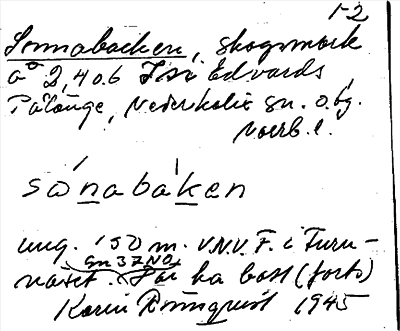 1-2
Sonnabacken, skogsmark
å 2,406 Edvards
Pålänge, Nederkalix sn. o. tg.
Norrb. l.
sònabáken
ung. 150 m. V.N.V. F. i Furu-
näset. Där ha bott (forts)
Karin Rönnquist 1945